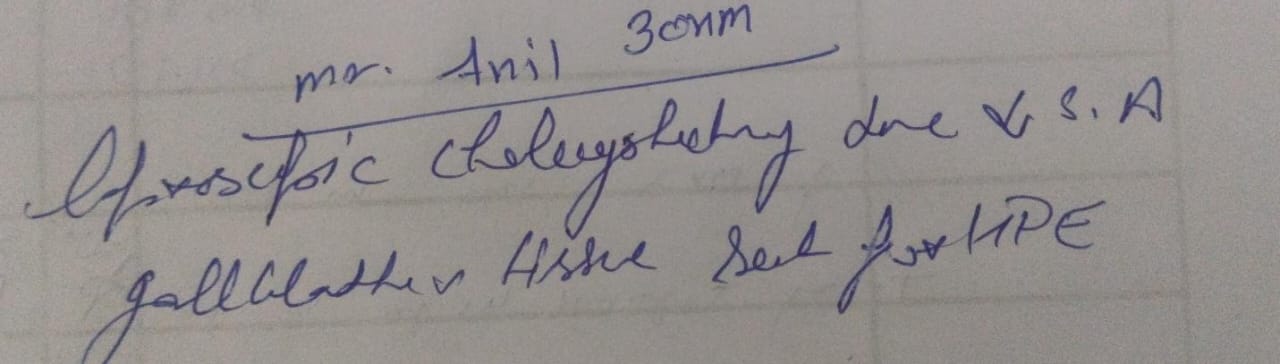 mr. Anil 30 
laproscopic cholecystectomy done S.A
gallbladder tissue sent for HPE